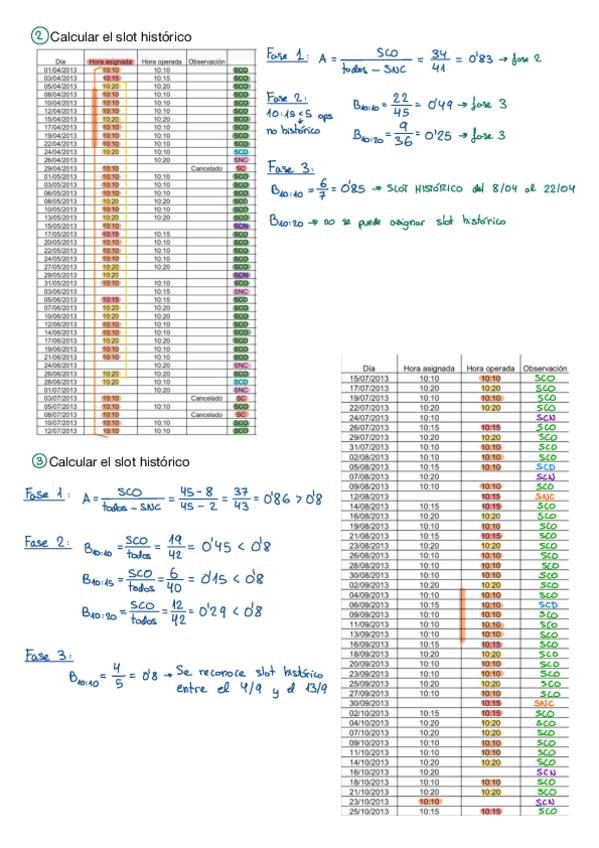 ② Calcular el slot histórico
Día Hora asignada Hora operada Observación
01/04/2013 10:10 10:10 SCO
03/04/2013 10:15 10:15 SCO
05/04/2013 10:20 10:20 SCO
08/04/2013 10:10 10:10 SCO
10/04/2013 10:10 10:10 SCO
12/04/2013 10:10 10:10 SCO
15/04/2013 10:20 10:20 SCO
17/04/2013 10:10 10:10 SCO
19/04/2013 10:10 10:10 SCO
22/04/2013 10:10 10:10 SCO
24/04/2013 10:20 10:20 SCD
26/04/2013 10:20 SNC
29/04/2013 10:10 Cancelado SC
01/05/2013 10:10 10:10 SCO
03/05/2013 10:10 10:10 SCO
06/05/2013 10:10 10:10 SCO
08/05/2013 10:20 10:20 SCO
10/05/2013 10:10 10:10 SCO
13/05/2013 10:20 10:20 SCO
15/05/2013 10:10 SCN
17/05/2013 10:15 10:15 SCO
20/05/2013 10:10 10:10 SCO
22/05/2013 10:10 10:10 SCO
24/05/2013 10:10 10:10 SCO
27/05/2013 10:20 10:20 SCO
29/05/2013 10:20 SCN
31/05/2013 10:10 10:10 SCO
03/06/2013 10:15 SNC
05/06/2013 10:15 10:15 SCO
07/06/2013 10:20 10:20 SCO
10/06/2013 10:20 10:20 SCO
12/06/2013 10:10 10:10 SCO
14/06/2013 10:10 10:10 SCO
17/06/2013 10:20 10:20 SCO
19/06/2013 10:10 10:10 SCO
21/06/2013 10:10 10:10 SCO
24/06/2013 10:20 SNC
26/06/2013 10:20 10:20 SCO
28/06/2013 10:20 10:20 SCD
01/07/2013 10:20 SNC
03/07/2013 10:10 Cancelado SC
05/07/2013 10:10 10:10 SCO
08/07/2013 10:10 Cancelado SC
10/07/2013 10:10 10:10 SCO
12/07/2013 10:10 10:10 SCO
Fase 1: A = SCO / todos - SNC = 34/41 = 0'83 → fase 2
Fase 2:
10:15 < 5 ops
no histórico
B10:10 = 22/45 = 0'49 → fase 3
B10:20 = 9/36 = 0'25 → fase 3
Fase 3:
B10:10 = 6/7 = 0'85 → SLOT HISTÓRICO del 8/04 al 22/04
B10:20 → no se puede asignar slot histórico
③ Calcular el slot histórico
Fase 1: A = SCO / todos - SNC = 45-8 / 45-2 = 37/43 = 0'86 > 0'8
Fase 2: B10:10 = SCO/todos = 19/42 = 0'45 < 0'8
B10:15 = SCO/todos = 6/40 = 0'15 < 0'8
B10:20 = SCO/todos = 12/42 = 0'29 < 0'8
Fase 3:
B10:10 = 4/5 = 0'8 → Se reconoce slot histórico
entre el 4/9 y el 13/9
Día Hora asignada Hora operada Observación
15/07/2013 10:10 10:10 SCO
17/07/2013 10:20 10:20 SCO
19/07/2013 10:10 10:10 SCO
22/07/2013 10:20 10:20 SCO
24/07/2013 10:10 SCN
26/07/2013 10:15 10:15 SCO
29/07/2013 10:20 10:20 SCO
31/07/2013 10:10 10:10 SCO
02/08/2013 10:10 10:10 SCO
05/08/2013 10:15 10:10 SCD
07/08/2013 10:20 SCN
09/08/2013 10:10 10:10 SCO
12/08/2013 10:15 SNC
14/08/2013 10:15 10:15 SCO
16/08/2013 10:20 10:20 SCO
19/08/2013 10:10 10:10 SCO
21/08/2013 10:15 10:15 SCO
23/08/2013 10:20 10:20 SCO
26/08/2013 10:10 10:10 SCO
28/08/2013 10:10 10:10 SCO
30/08/2013 10:10 10:10 SCO
02/09/2013 10:20 10:20 SCO
04/09/2013 10:10 10:10 SCO
06/09/2013 10:15 10:10 SCD
09/09/2013 10:10 10:10 SCO
11/09/2013 10:10 10:10 SCO
13/09/2013 10:10 10:10 SCO
16/09/2013 10:15 10:15 SCO
18/09/2013 10:20 10:20 SCO
20/09/2013 10:10 10:10 SCO
23/09/2013 10:10 10:10 SCO
25/09/2013 10:20 10:20 SCO
27/09/2013 10:10 10:10 SCO
30/09/2013 10:15 SNC
02/10/2013 10:15 10:15 SCO
04/10/2013 10:20 10:20 SCO
07/10/2013 10:20 10:20 SCO
09/10/2013 10:10 10:10 SCO
11/10/2013 10:10 10:10 SCO
14/10/2013 10:20 10:20 SCO
16/10/2013 10:20 SCN
18/10/2013 10:10 10:10 SCO
21/10/2013 10:20 10:20 SCO
23/10/2013 10:10 SCN
25/10/2013 10:15 10:15 SCO